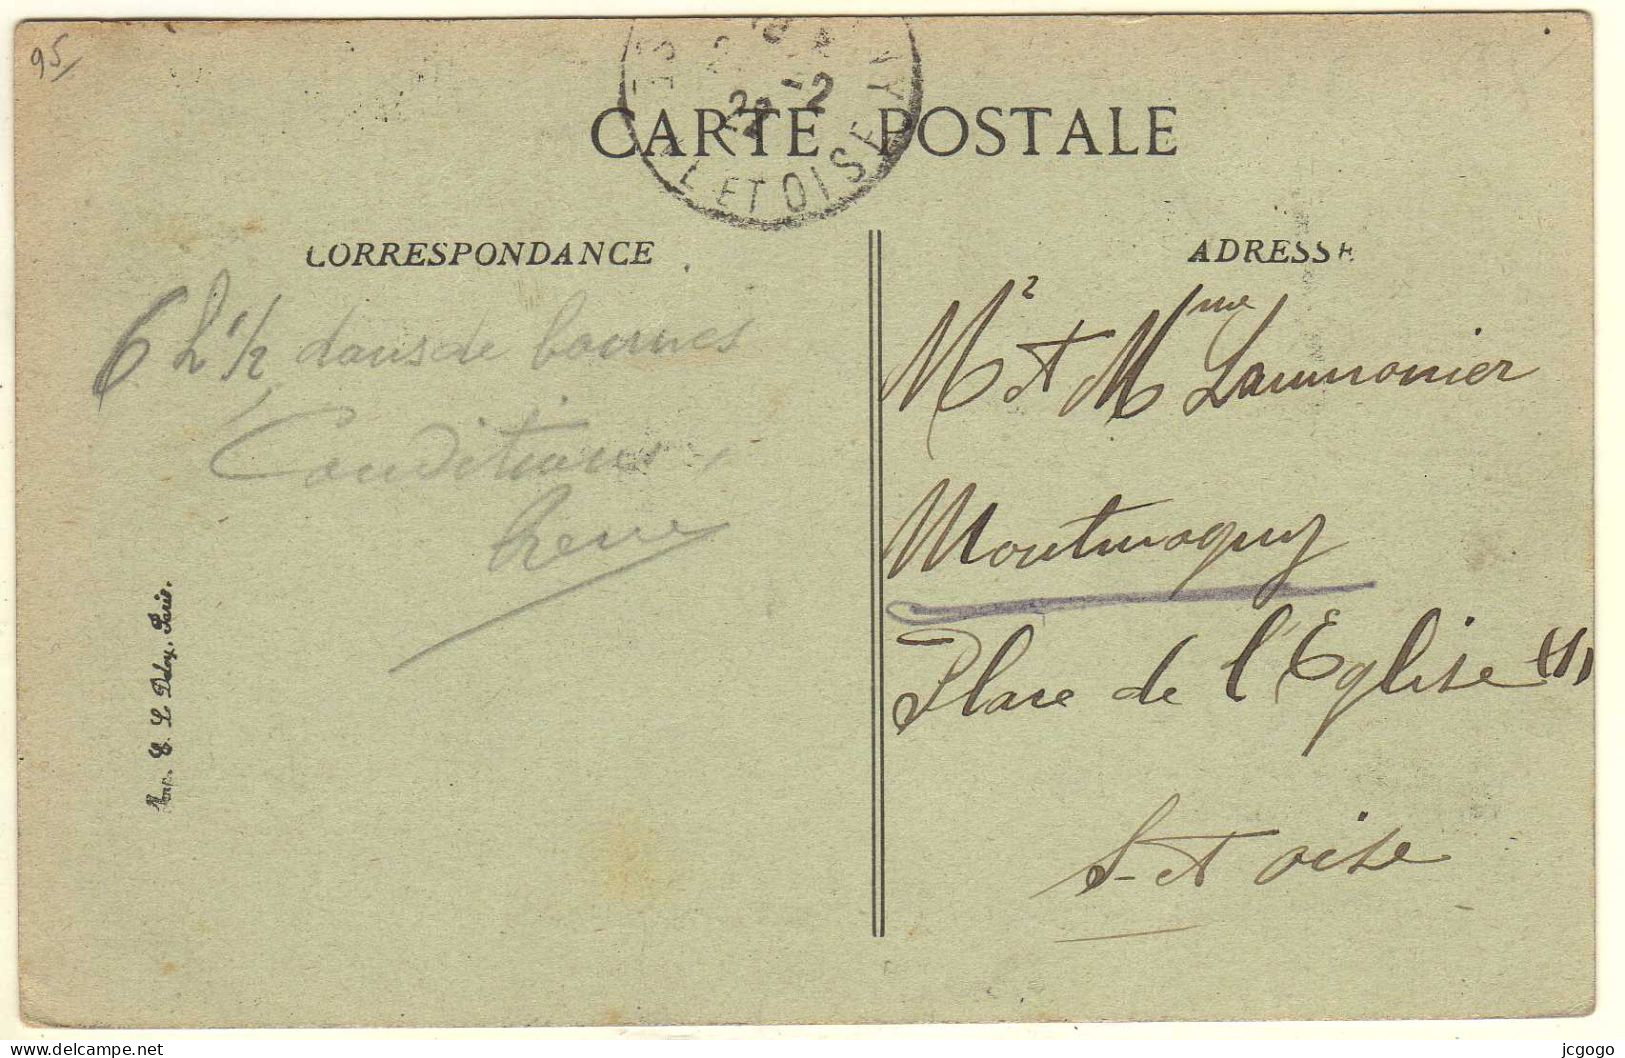 95
CARTE POSTALE
22-2
ET OISE
CORRESPONDANCE
6 h 1/2 dans de bonnes
Conditions
René
Imp. E. L. Deley, Paris.
ADRESSE
Mr et Mme Laumonier
Montmagny
Place de l'Eglise
S. et oise
delcampe.net
jcgogo